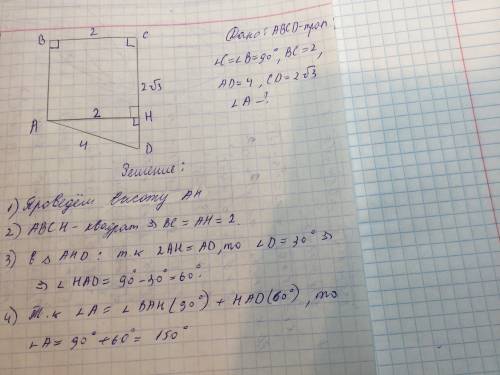 2
B
C
Дано: ABCD-трап.
∠C=∠B=90°, BC=2,
2√3
AD=4, CD=2√3
∠A-?
2
A
H
4
D
Решение:
1) Проведём высоту AH
2) ABCH-квадрат ⇒ BC=AH=2.
3) В △ AHD: т.к 2AH=AD, то ∠D=30° ⇒
⇒ ∠HAD=90°-30°=60°.
4) Т.к ∠A=∠BAH(90°)+HAD(60°), то
∠A=90°+60°=150°